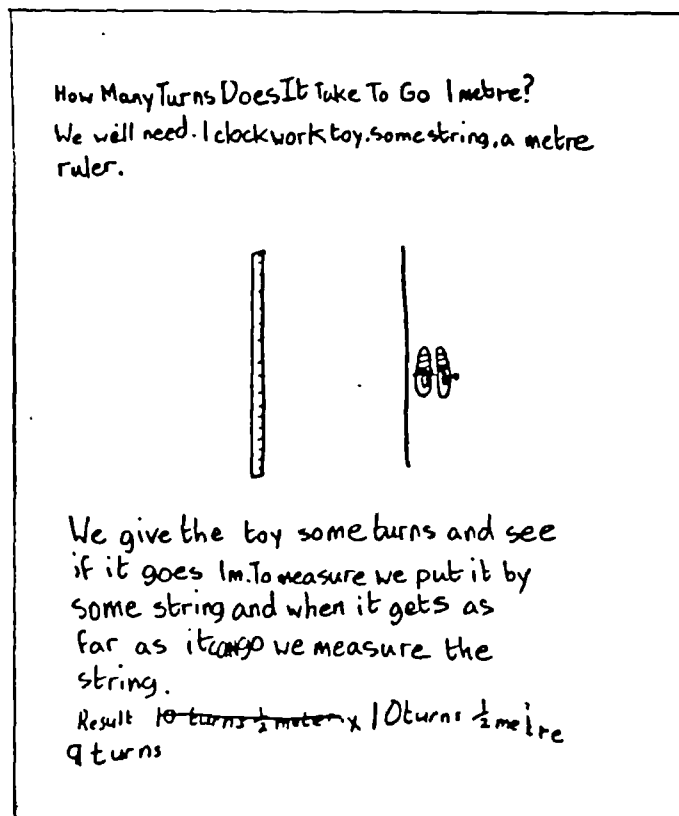 How Many Turns Does It Take To Go 1 metre?
We will need. 1 clockwork toy. some string. a metre
ruler.
We give the toy some turns and see
if it goes 1m. To measure we put it by
some string and when it gets as
far as it can go we measure the
string.
Result 10 turns ½ meter x 10 turns ½ metre
9 turns